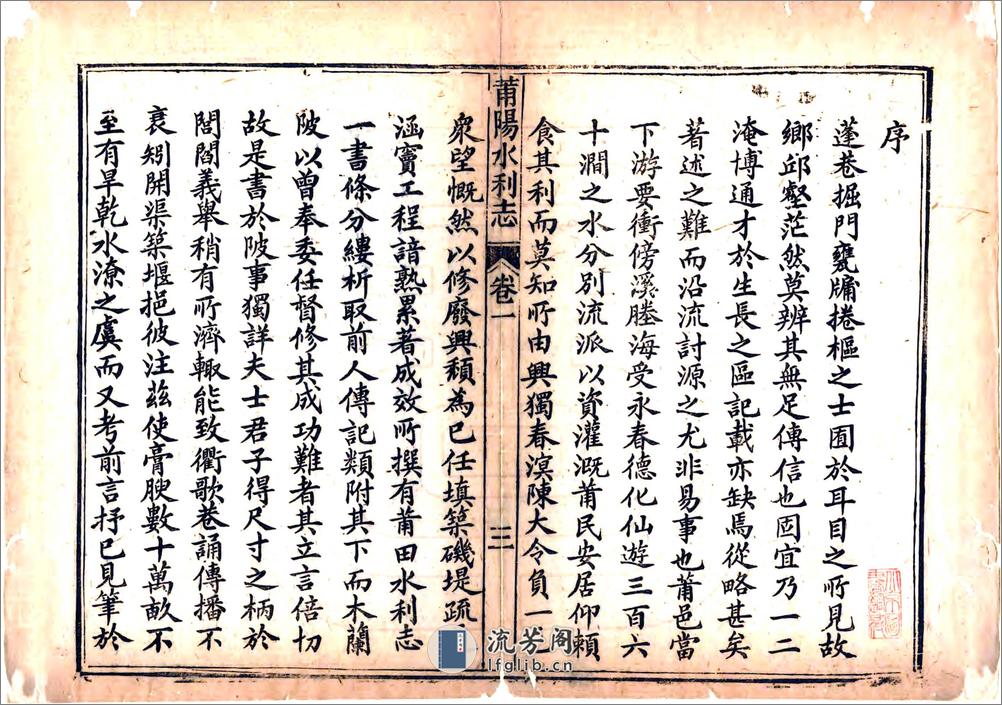 序
蓬巷掘門甕牖捲樞之士囿於耳目之所見故
鄉邱壑茫然莫辨其無足傳信也固宜乃一二
淹博通才於生長之區記載亦缺焉從略甚矣
著述之難而沿流討源之尤非易事也莆邑當
下游要衝傍溪塍海受永春德化仙遊三百六
十澗之水分別流派以資灌溉莆民安居仰賴
食其利而莫知所由興獨春溟陳大令負一
莆陽水利志
卷一
三
衆望慨然以修廢興頹為已任填築磯堤疏
涵竇工程諳熟累著成效所撰有莆田水利志
一書條分縷析取前人傳記類附其下而木蘭
陂以曾奉委任督修其成功難者其立言倍切
故是書於陂事獨詳夫士君子得尺寸之柄於
閭閻義舉稍有所濟輙能致衢歌巷誦傳播不
衰矧開渠築堰挹彼注茲使膏腴數十萬畝不
至有旱乾水潦之虞而又考前言抒已見筆於
流芳阁
lfglib.cn